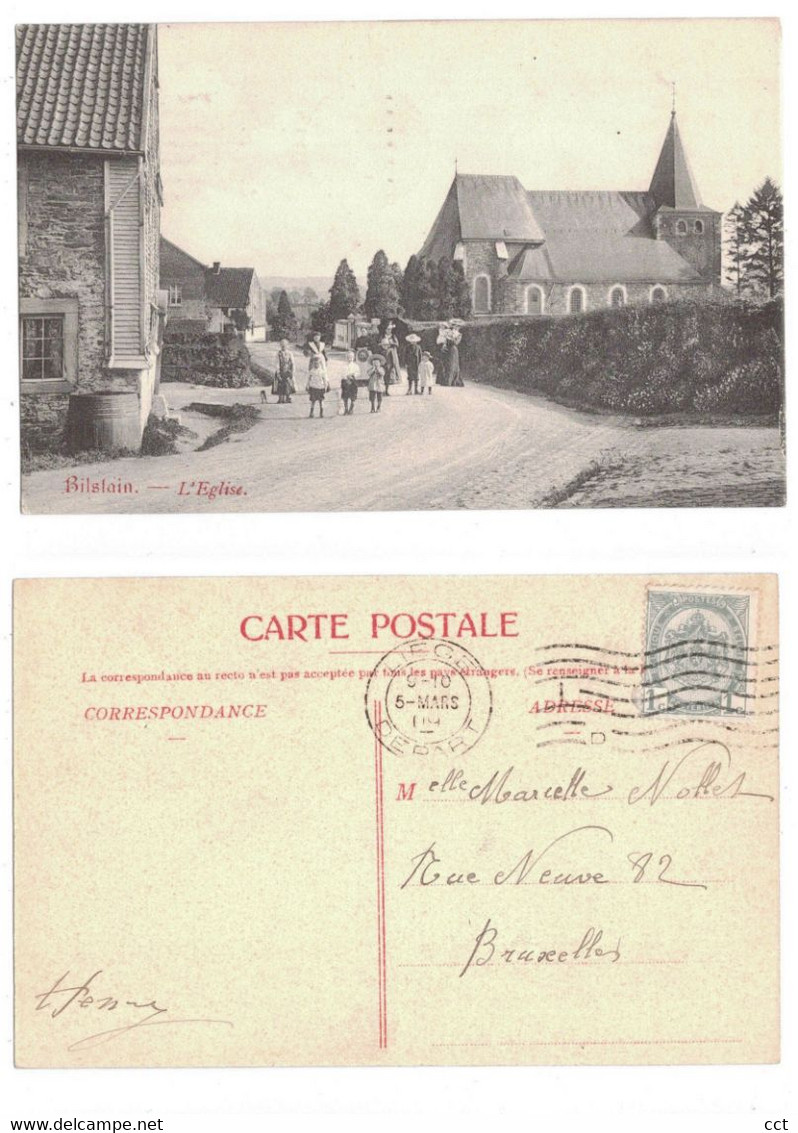 Bilstain. — L'Eglise.
CARTE POSTALE
La correspondance au recto n'est pas acceptée par tous les pays étrangers. (Se renseigner à la
CORRESPONDANCE
ADRESSE
LIEGE
5-MARS
09
DEPART
D
POSTES
1 1
Melle Marcelle Nollet
Rue Neuve 82
Bruxelles
Henry
cct